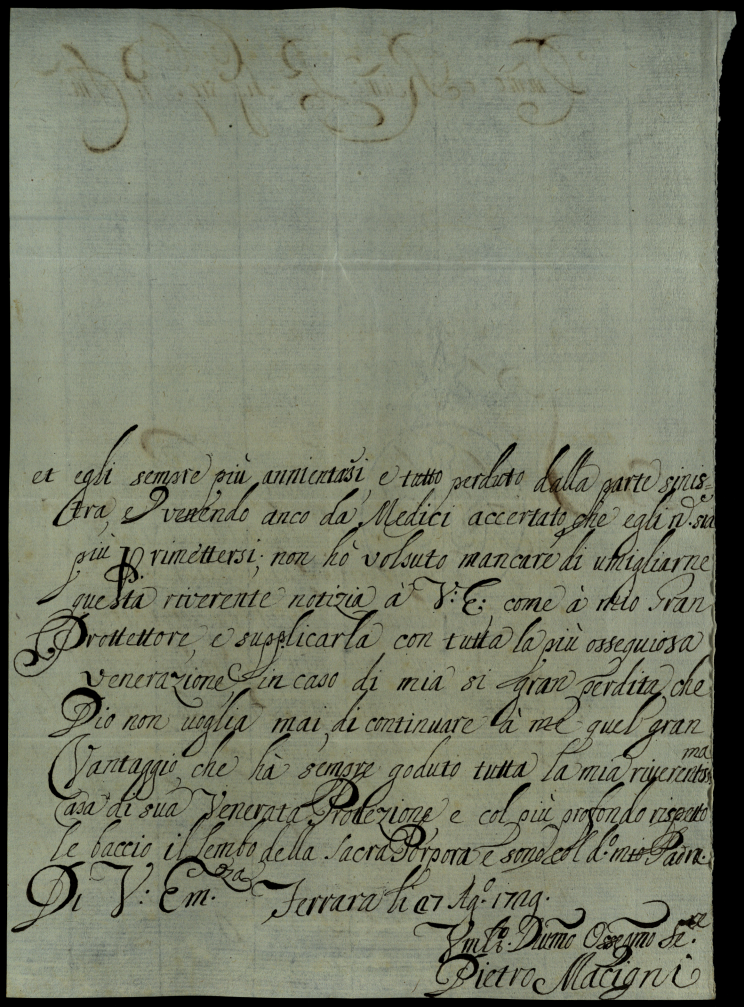 et egli sempre più annientasi, e tutto perduto dalla parte sinis=
tra, e venendo anco da Medici accertato che egli n. sia
più p. rimettersi; non hò volsuto mancare di umigliarne
questa riverente notizia à V: E: come à mio Gran
Prottettore, e supplicarla con tutta la più osseguiosa
venerazione, in caso di mia si gran perdita, che
Dio non voglia mai, di continuare à me quel gran
Vantaggio, che hà sempre goduto tutta la mia riverentis.ma
Casa di sua Venerata Protezione e col più profondo rispetto
le baccio il lembo della Sacra Porpora e sono col d.o mio Padre.
Di V: Em.za Ferrara li 17 Ag.o 1729.
Umil.o Divmo Osseqmo Se.re
Pietro Macigni